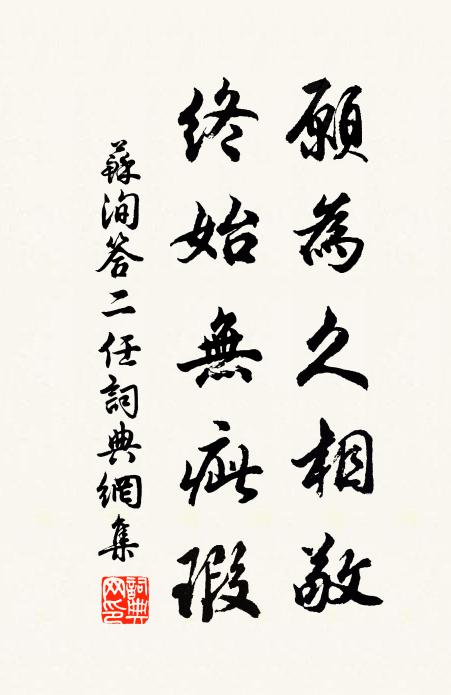 願為久相敬
終始無疵瑕
蘇洵答二任詞典網集
詞典
网印